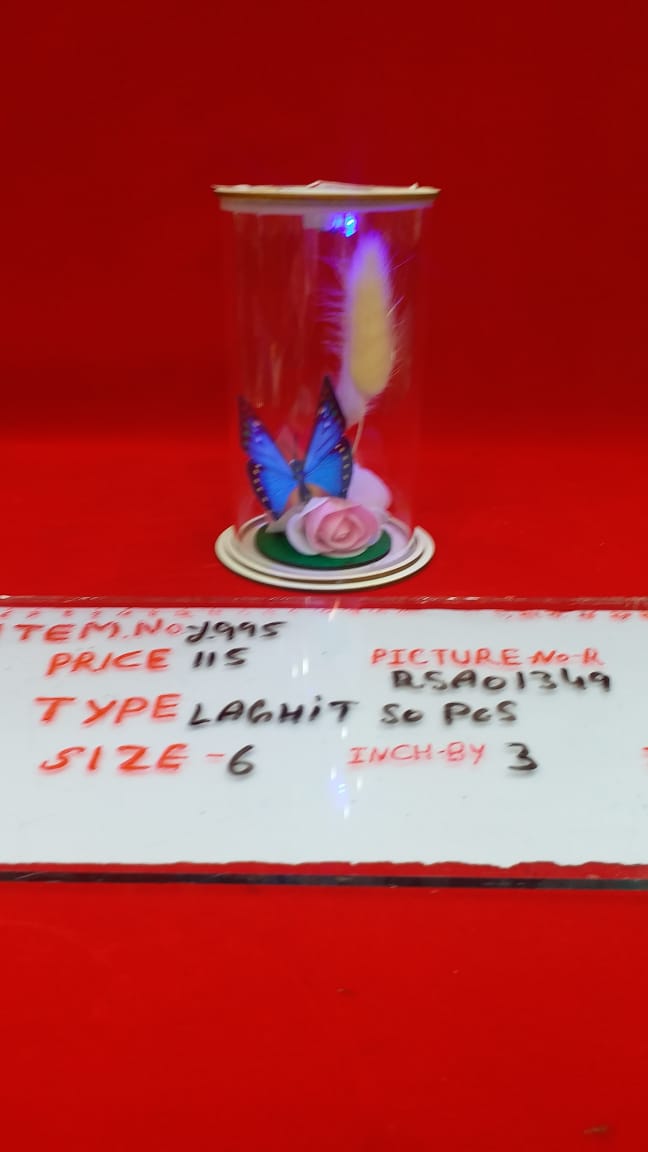 ITEM.No 2995
PRICE 115
PICTURE-No-R
RSA01349
TYPE LAGHiT 50 PCS
SIZE - 6 INCH-BY 3